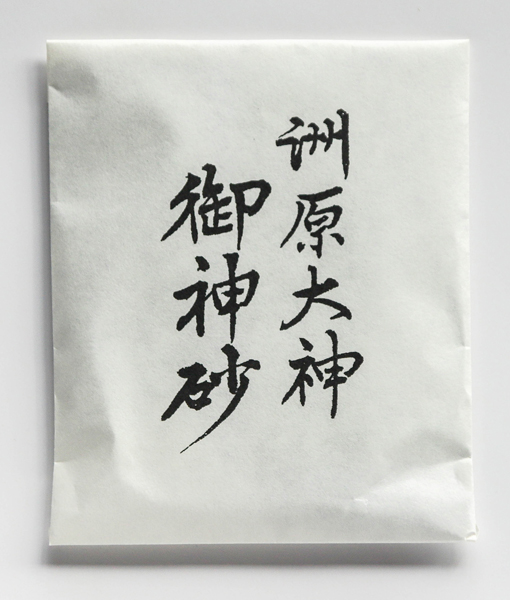 洲原大神
御神砂